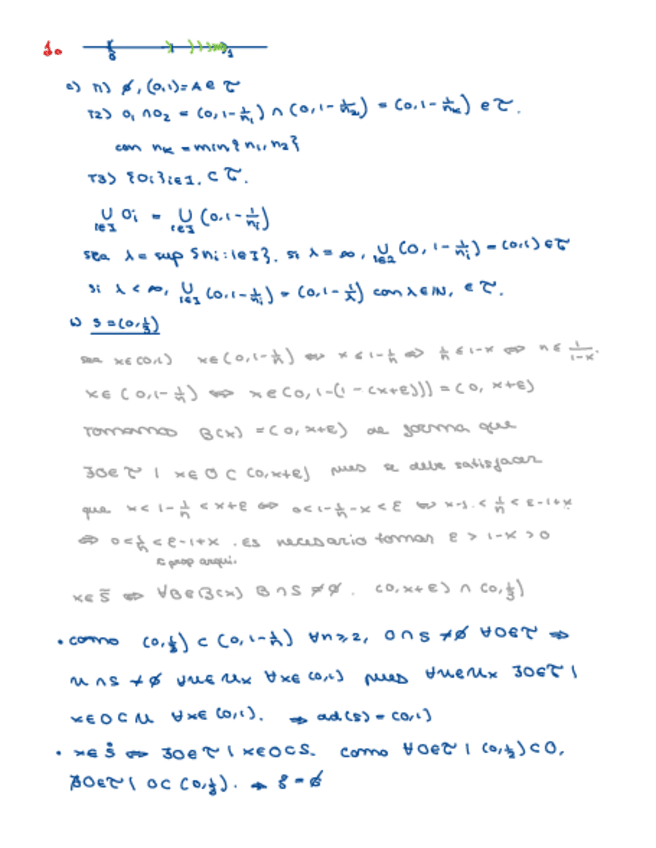 1.
0 1
a) T1) ∅, (0,1) = A ∈ τ
T2) O₁ ∩ O₂ = (0, 1 - 1/n₁) ∩ (0, 1 - 1/n₂) = (0, 1 - 1/nₖ) ∈ τ.
con nₖ = min{n₁, n₂}
T3) {Oi}i∈I ⊂ τ.
∪i∈I Oi = ∪i∈I (0, 1 - 1/ni)
sea λ = sup {ni : i∈I}. si λ = ∞, ∪i∈I (0, 1 - 1/ni) = (0,1) ∈ τ
si λ < ∞, ∪i∈I (0, 1 - 1/ni) = (0, 1 - 1/λ) con λ ∈ ℕ, ∈ τ.
b) S = (0, 1/3)
sea x ∈ (0,1) x ∈ (0, 1 - 1/n) ⇔ x ≤ 1 - 1/n ⇔ 1/n ≤ 1-x ⇔ n ≤ 1/(1-x).
x ∈ (0, 1 - 1/n) ⇔ x ∈ (0, 1 - (1 - (x+ε))) = (0, x+ε)
Tomamos B(x) = (0, x+ε) de forma que
∃O∈τ | x ∈ O ⊂ (0, x+ε) pues se debe satisfacer
que x < 1 - 1/n < x+ε ⇔ 0 < 1 - 1/n - x < ε ⇔ x-1 < 1/n < ε-1+x
⇔ 0 < 1/n < ε-1+x . Es necesario tomar ε > 1-x > 0
prop arqui.
x ∈ S̄ ⇔ ∀B∈B(x) B∩S ≠ ∅. (0, x+ε) ∩ (0, 1/3)
• como (0, 1/3) ⊂ (0, 1 - 1/n) ∀n≥2, O∩S ≠ ∅ ∀O∈τ ⇒
U∩S ≠ ∅ ∀U∈Ux ∀x∈(0,1) pues ∀U∈Ux ∃O∈τ |
x∈O⊂U ∀x∈(0,1). ⇒ ad(S) = (0,1)
• x∈S̊ ⇔ ∃O∈τ | x∈O⊂S. como ∀O∈τ | (0, 1/2) ⊂ O,
∄O∈τ | O⊂(0, 1/3). ⇒ S̊ = ∅